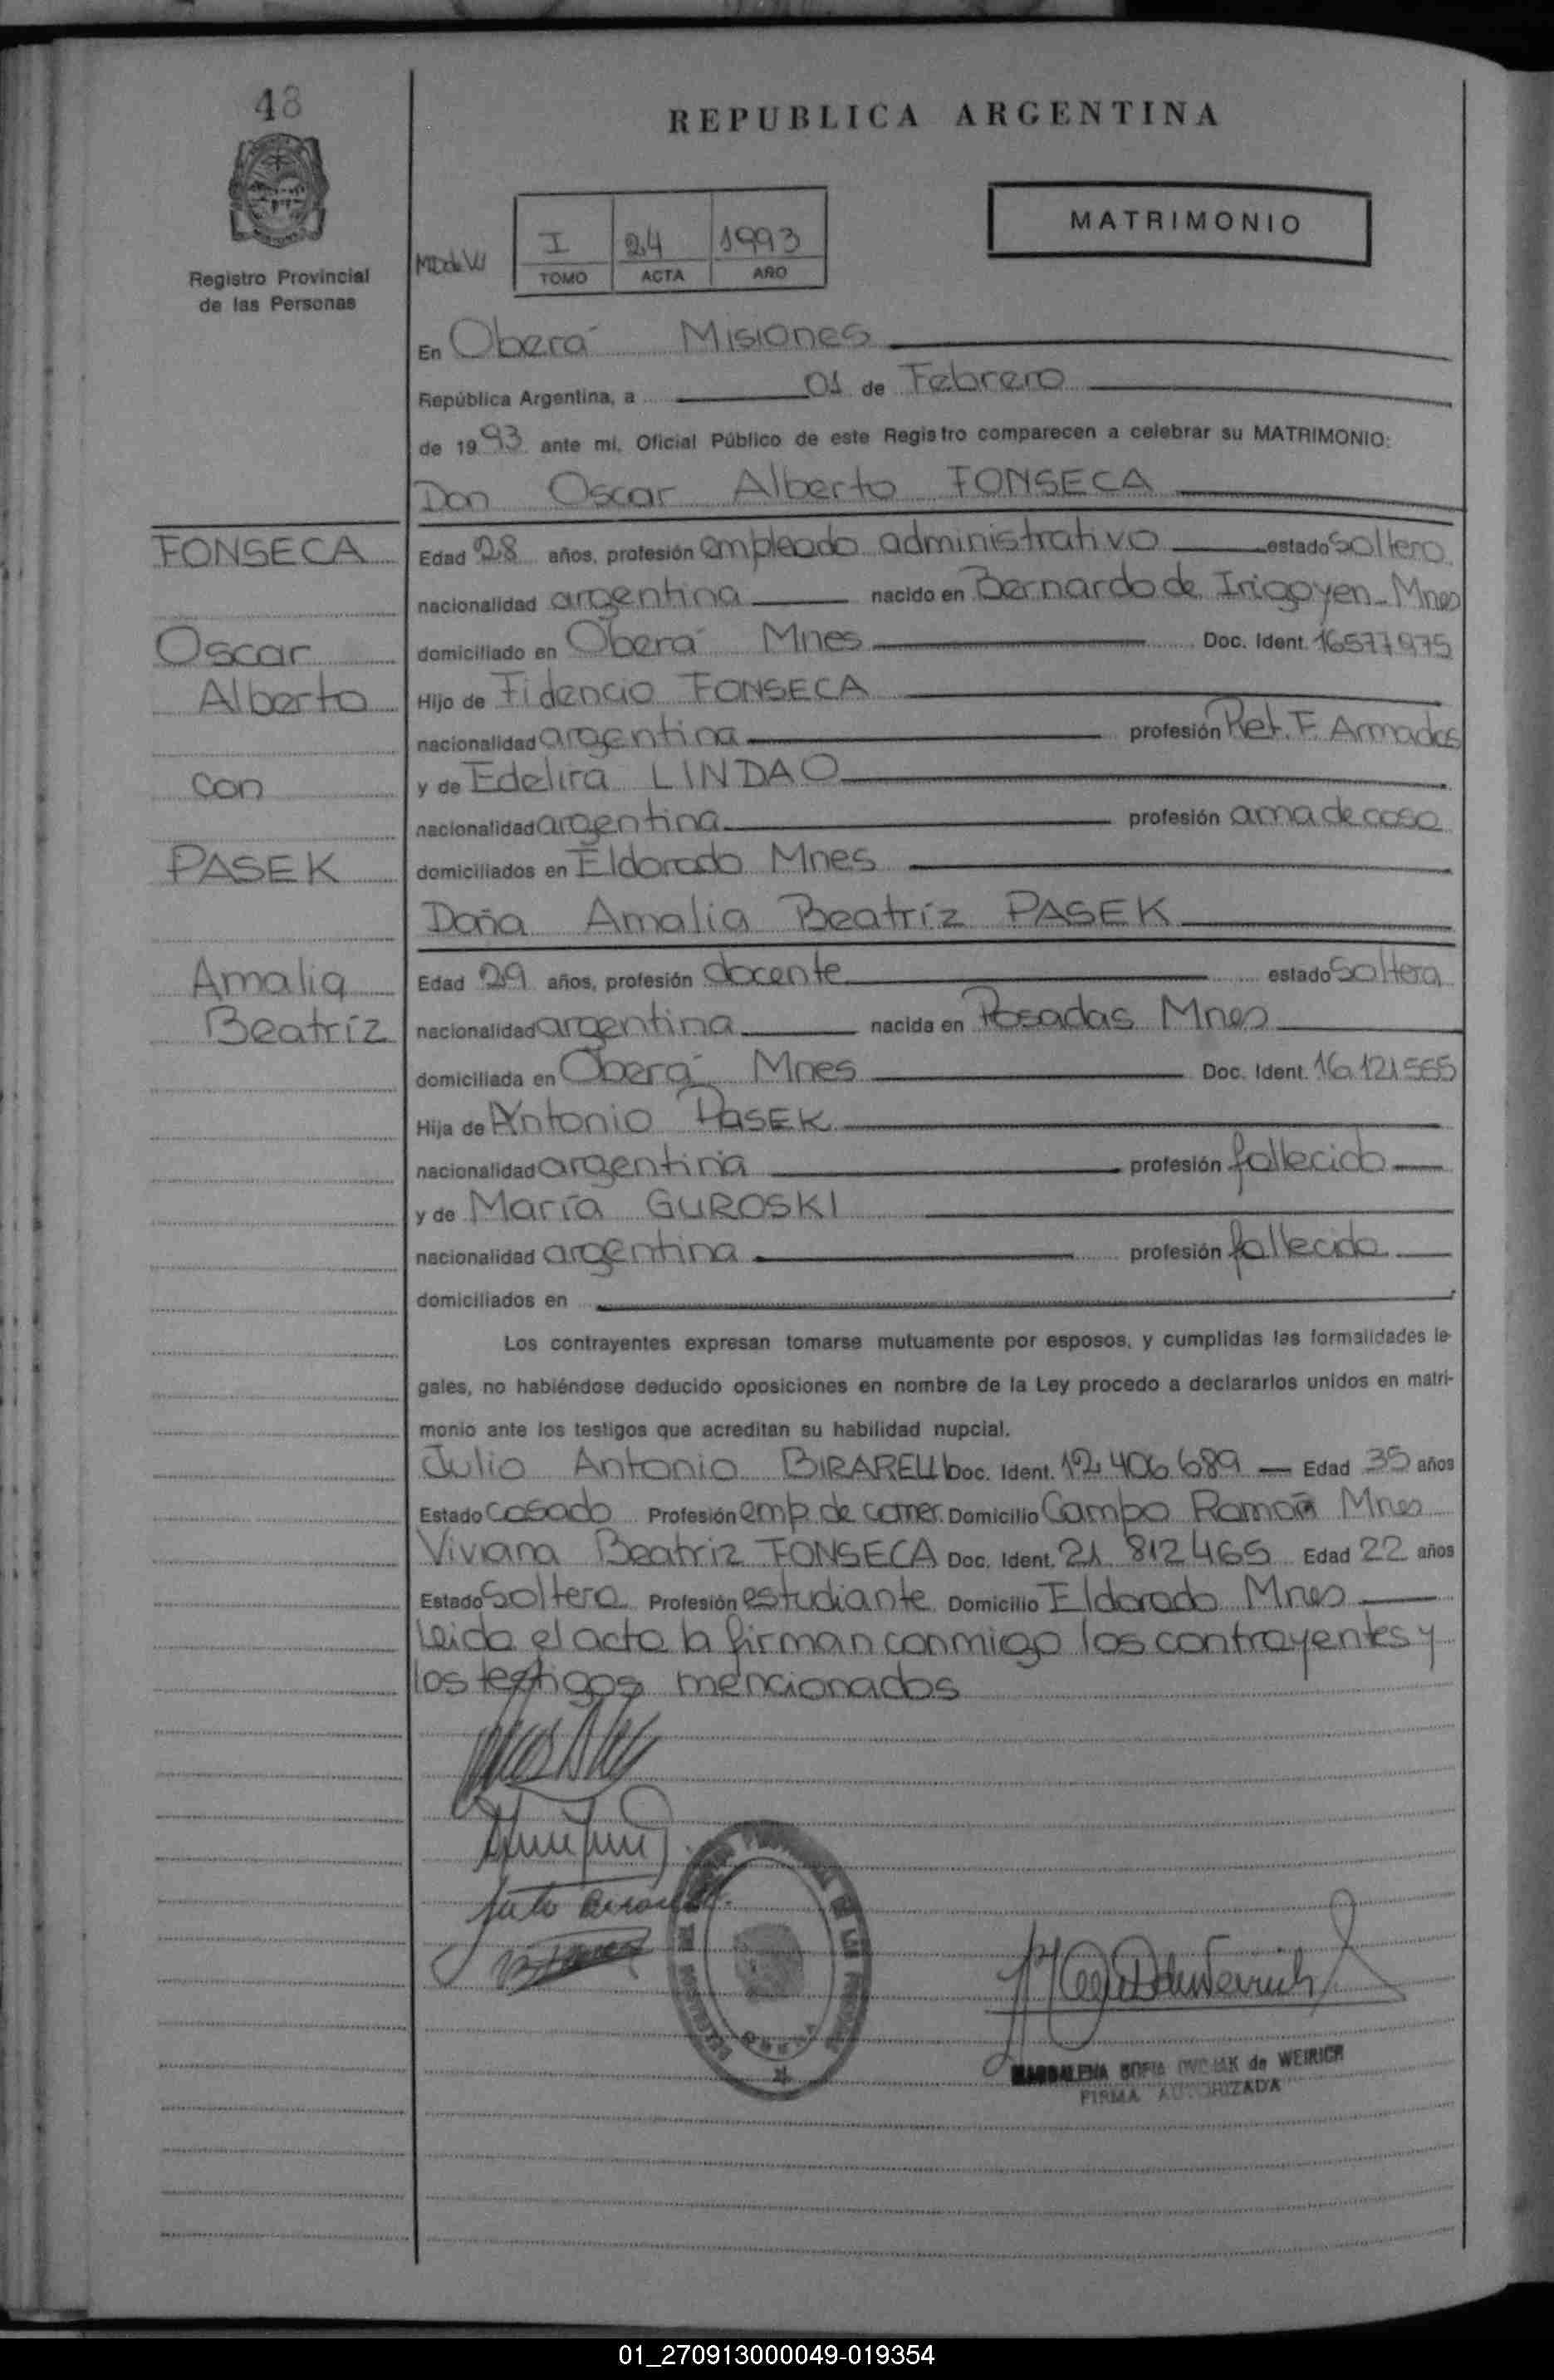 48
REPUBLICA ARGENTINA
MATRIMONIO
Registro Provincial
de las Personas
I 24 1993
TOMO ACTA AÑO
En Oberá Misiones
República Argentina, a 01 de Febrero
de 1993 ante mi, Oficial Público de este Registro comparecen a celebrar su MATRIMONIO:
Don Oscar Alberto FONSECA
FONSECA
Edad 28 años, profesión empleado administrativo estado soltero
nacionalidad argentina nacido en Bernardo de Irigoyen - Mnes
Oscar
domiciliado en Oberá Mnes Doc. Ident. 16577975
Alberto
Hijo de Fidencio FONSECA
nacionalidad argentina profesión Ret. F. Armadas
con
y de Edelira LINDAO
nacionalidad argentina profesión ama de casa
PASEK
domiciliados en Eldorado Mnes
Doña Amalia Beatríz PASEK
Amalia
Edad 29 años, profesión docente estado soltera
Beatríz
nacionalidad argentina nacida en Posadas Mnes
domiciliada en Oberá Mnes Doc. Ident. 16.121.555
Hija de Antonio PASEK
nacionalidad argentina profesión fallecido
y de María GUROSKI
nacionalidad argentina profesión fallecida
domiciliados en
Los contrayentes expresan tomarse mutuamente por esposos, y cumplidas las formalidades le-
gales, no habiéndose deducido oposiciones en nombre de la Ley procedo a declararlos unidos en matri-
monio ante los testigos que acreditan su habilidad nupcial.
Julio Antonio BIRARELLI Doc. Ident. 12.406.689 — Edad 35 años
Estado casado Profesión emp. de comer. Domicilio Campo Ramón Mnes
Viviana Beatriz FONSECA Doc. Ident. 21 812465 Edad 22 años
Estado soltera Profesión estudiante Domicilio Eldorado Mnes
Leida el acta la firman conmigo los contrayentes y
los testigos mencionados
MAGDALENA SOFIA de WEIRICH
FIRMA AUTORIZADA
01_270913000049-019354